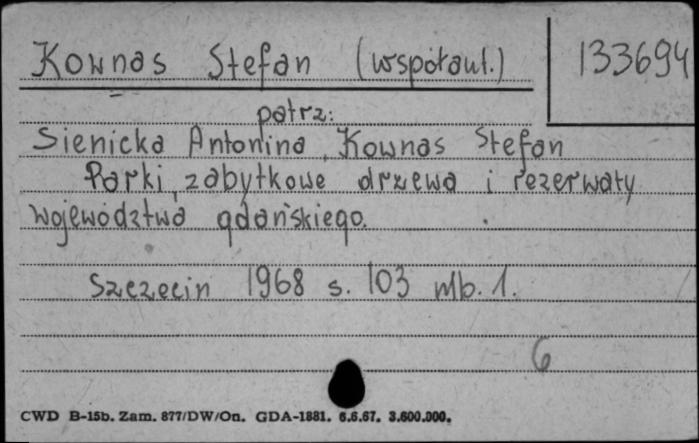 Kownas Stefan (współaut.) 133694
patrz:
Sienicka Antonina, Kownas Stefan
Parki, zabytkowe drzewa i rezerwaty
województwa gdańskiego.
Szczecin 1968 s. 103 nlb. 1.
6
CWD B-15b. Zam. 877/DW/On. GDA-1881. 6.6.67. 3.600.000.